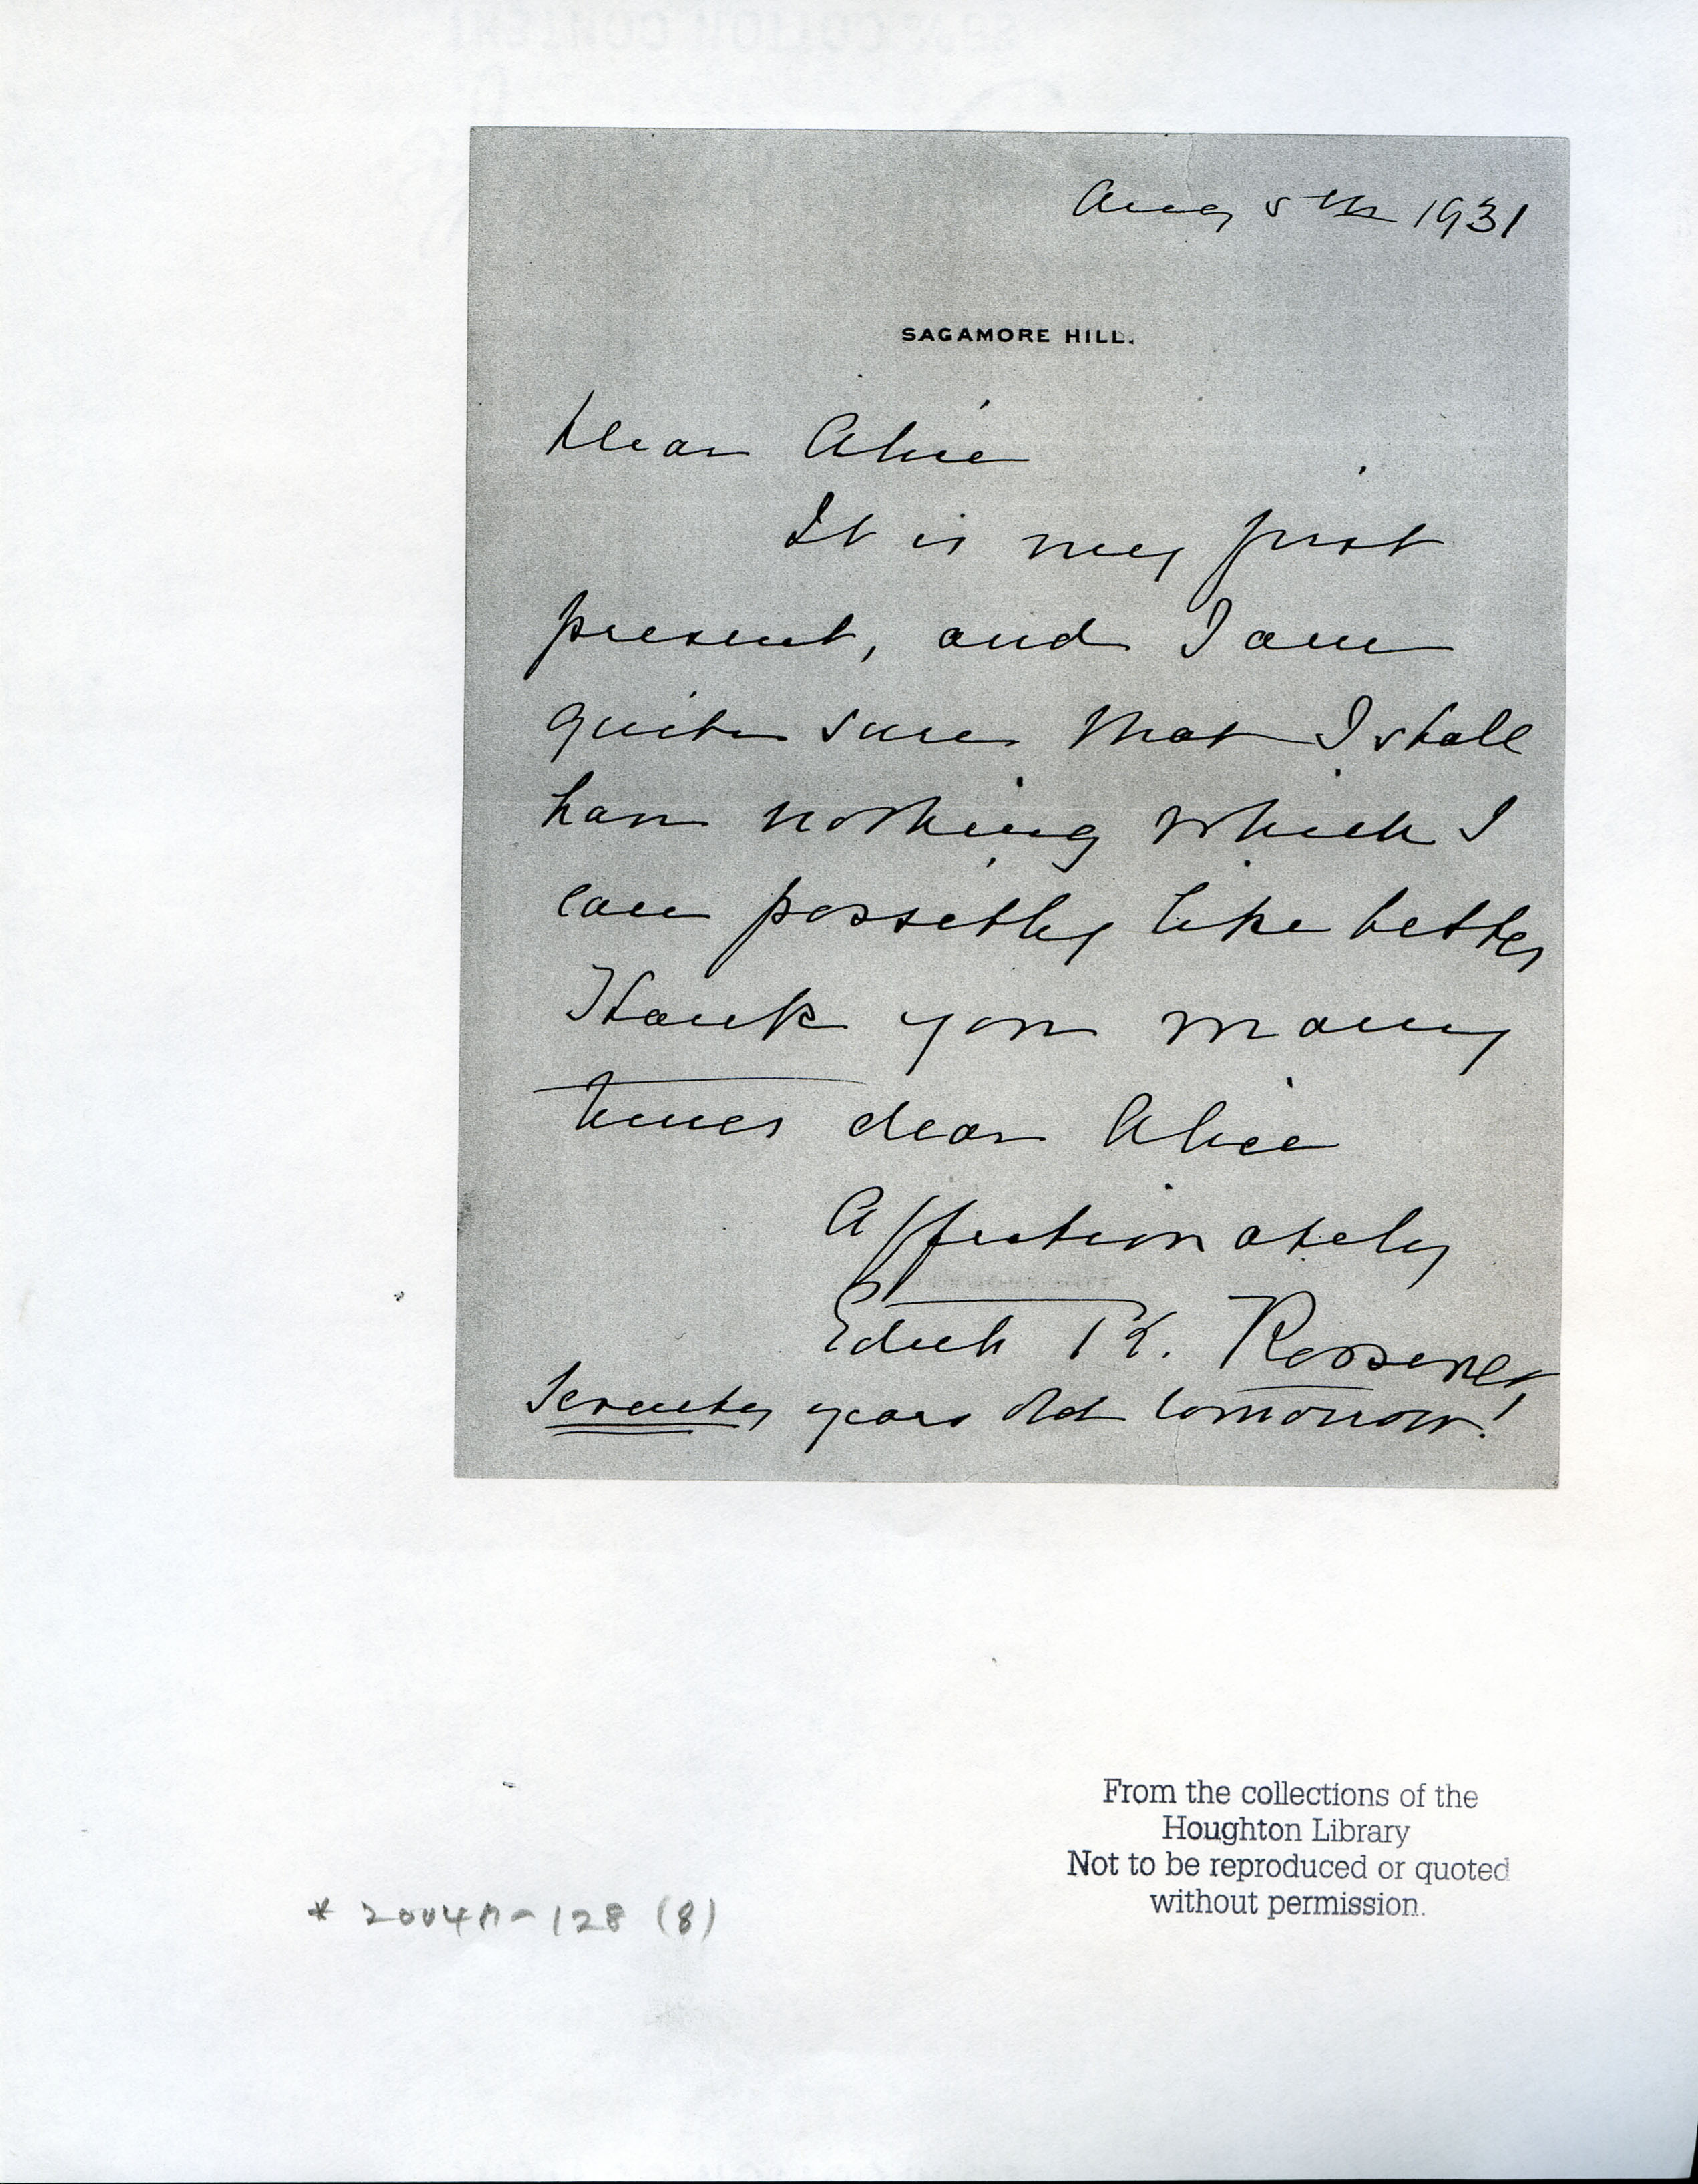 Aug 5th 1931
SAGAMORE HILL.
Dear Alice
It is my first
present, and I am
quite sure that I shall
have nothing which I
can possibly like better
Thank you many
times dear Alice
Affectionately
Edith K. Roosevelt
Seventy years old tomorrow!
From the collections of the
Houghton Library
Not to be reproduced or quoted
without permission.
* 2004M-128 (8)